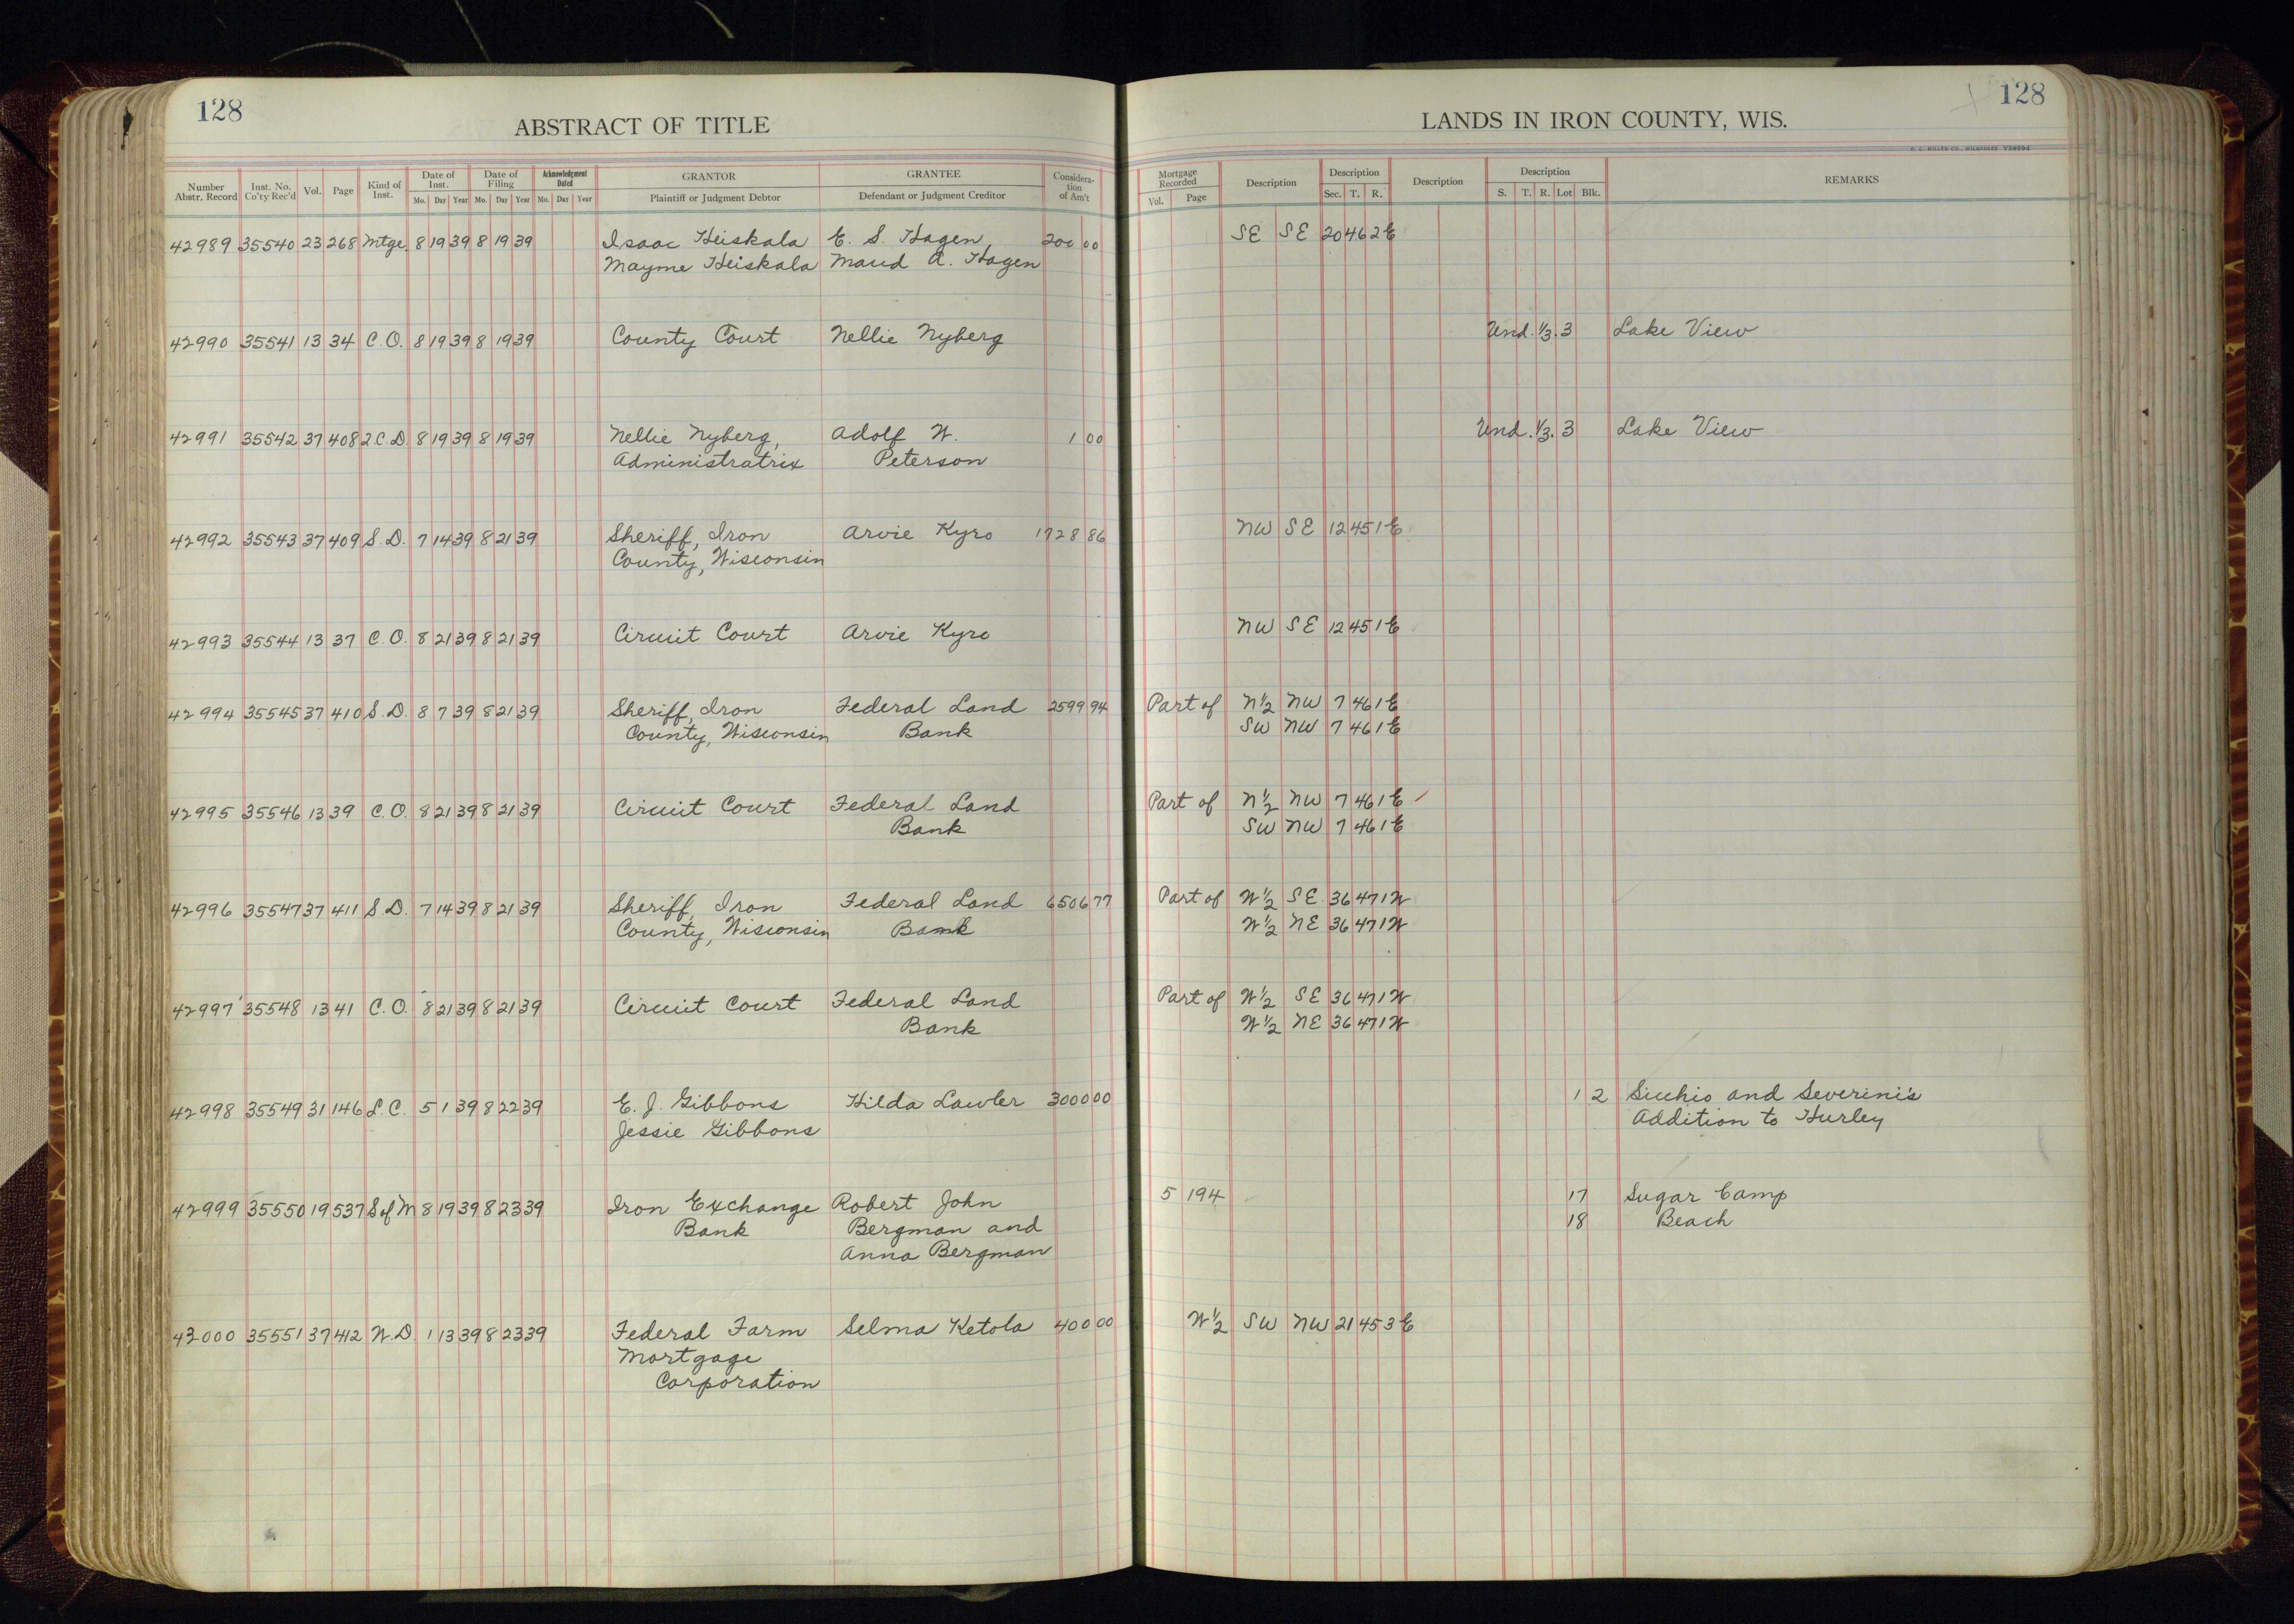 128
ABSTRACT OF TITLE
Number Abstr. Record Inst. No. Co'ty Rec'd Vol. Page Kind of Inst. Date of Inst. Mo. Day Year Date of Filing Mo. Day Year Acknowledgment Dated Mo. Day Year GRANTOR Plaintiff or Judgment Debtor GRANTEE Defendant or Judgment Creditor Considera-tion of Am't
LANDS IN IRON COUNTY, WIS.
128
Mortgage Recorded Vol. Page Description Description Sec. T. R. Description Description S. T. R. Lot Blk. REMARKS
42989 35540 23 268 Mtge 8 19 39 8 19 39 Isaac Heiskala E. S. Hagen, 200 00 SE SE 20 46 2E
Mayme Heiskala Maud A. Hagen
42990 35541 13 34 C.O. 8 19 39 8 19 39 County Court Nellie Nyberg Und. 1/3. 3 Lake View
42991 35542 37 408 2 C.D. 8 19 39 8 19 39 Nellie Nyberg, Adolf W. 1 00 Und. 1/3. 3 Lake View
Administratrix Peterson
42992 35543 37 409 S.D. 7 14 39 8 21 39 Sheriff, Iron Arvie Kyro 1728 86 NW SE 12 45 1E
County, Wisconsin
42993 35544 13 37 C.O. 8 21 39 8 21 39 Circuit Court Arvie Kyro NW SE 12 45 1E
42994 35545 37 410 S.D. 8 7 39 8 21 39 Sheriff, Iron Federal Land 2599 94 Part of N1/2 NW 7 46 1E
County, Wisconsin Bank SW NW 7 46 1E
42995 35546 13 39 C.O. 8 21 39 8 21 39 Circuit Court Federal Land Part of N1/2 NW 7 46 1E
Bank SW NW 7 46 1E
42996 35547 37 411 S.D. 7 14 39 8 21 39 Sheriff, Iron Federal Land 6506 77 Part of W1/2 SE 36 47 1W
County, Wisconsin Bank W1/2 NE 36 47 1W
42997 35548 13 41 C.O. 8 21 39 8 21 39 Circuit Court Federal Land Part of W1/2 SE 36 47 1W
Bank W1/2 NE 36 47 1W
42998 35549 31 146 L.C. 5 1 39 8 22 39 E. J. Gibbons Hilda Lawler 3000 00 1 2 Sicchio and Severini's
Jessie Gibbons Addition to Hurley
42999 35550 19 537 S of M 8 19 39 8 23 39 Iron Exchange Robert John 5 194 17 Sugar Camp
Bank Bergman and 18 Beach
Anna Bergman
43000 35551 37 412 W.D. 1 13 39 8 23 39 Federal Farm Selma Ketola 400 00 W1/2 SW NW 21 45 3E
Mortgage
Corporation